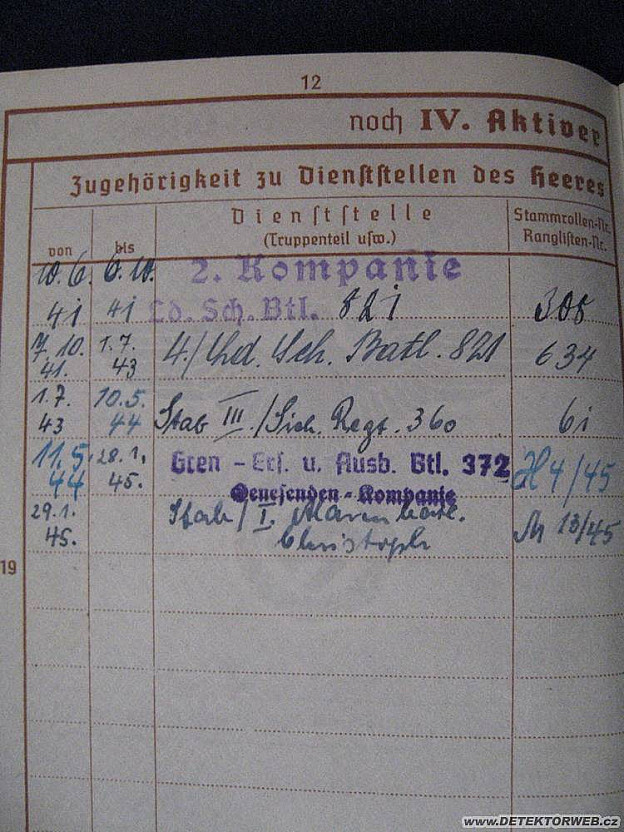 12
noch IV. Aktiver
Zugehörigkeit zu Dienststellen des Heeres
von
bis
Dienststelle
(Truppenteil usw.)
Stammrollen-Nr.
Ranglisten-Nr.
10.6. 6.10. 2. Kompanie
41 41 Ld. Sch. Btl. 821 308
7.10. 1.7. 4./Lhd. Sch. Batl. 821 634
41. 43
1.7. 10.5. Stab III./Sich. Regt. 360 61
43 44
11.5. 28.1. Gren - Ers. u. Ausb. Btl. 372 4/45
44 45. Genesenden - Kompanie
29.1. Stab/I. 13/45
45.
19
www.DETEKTORWEB.cz